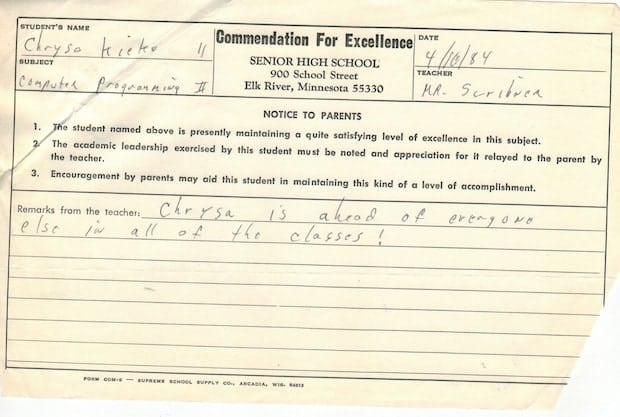 STUDENT'S NAME
Chrysa Kieke 11
SUBJECT
Computer Programming II
Commendation For Excellence
SENIOR HIGH SCHOOL
900 School Street
Elk River, Minnesota 55330
DATE
4/16/84
TEACHER
MR. Scribner
NOTICE TO PARENTS
1. The student named above is presently maintaining a quite satisfying level of excellence in this subject.
2. The academic leadership exercised by this student must be noted and appreciation for it relayed to the parent by
the teacher.
3. Encouragement by parents may aid this student in maintaining this kind of a level of accomplishment.
Remarks from the teacher: Chrysa is ahead of everyone
else in all of the classes!
FORM COM-5 — SUPREME SCHOOL SUPPLY CO., ARCADIA, WIS. 54612